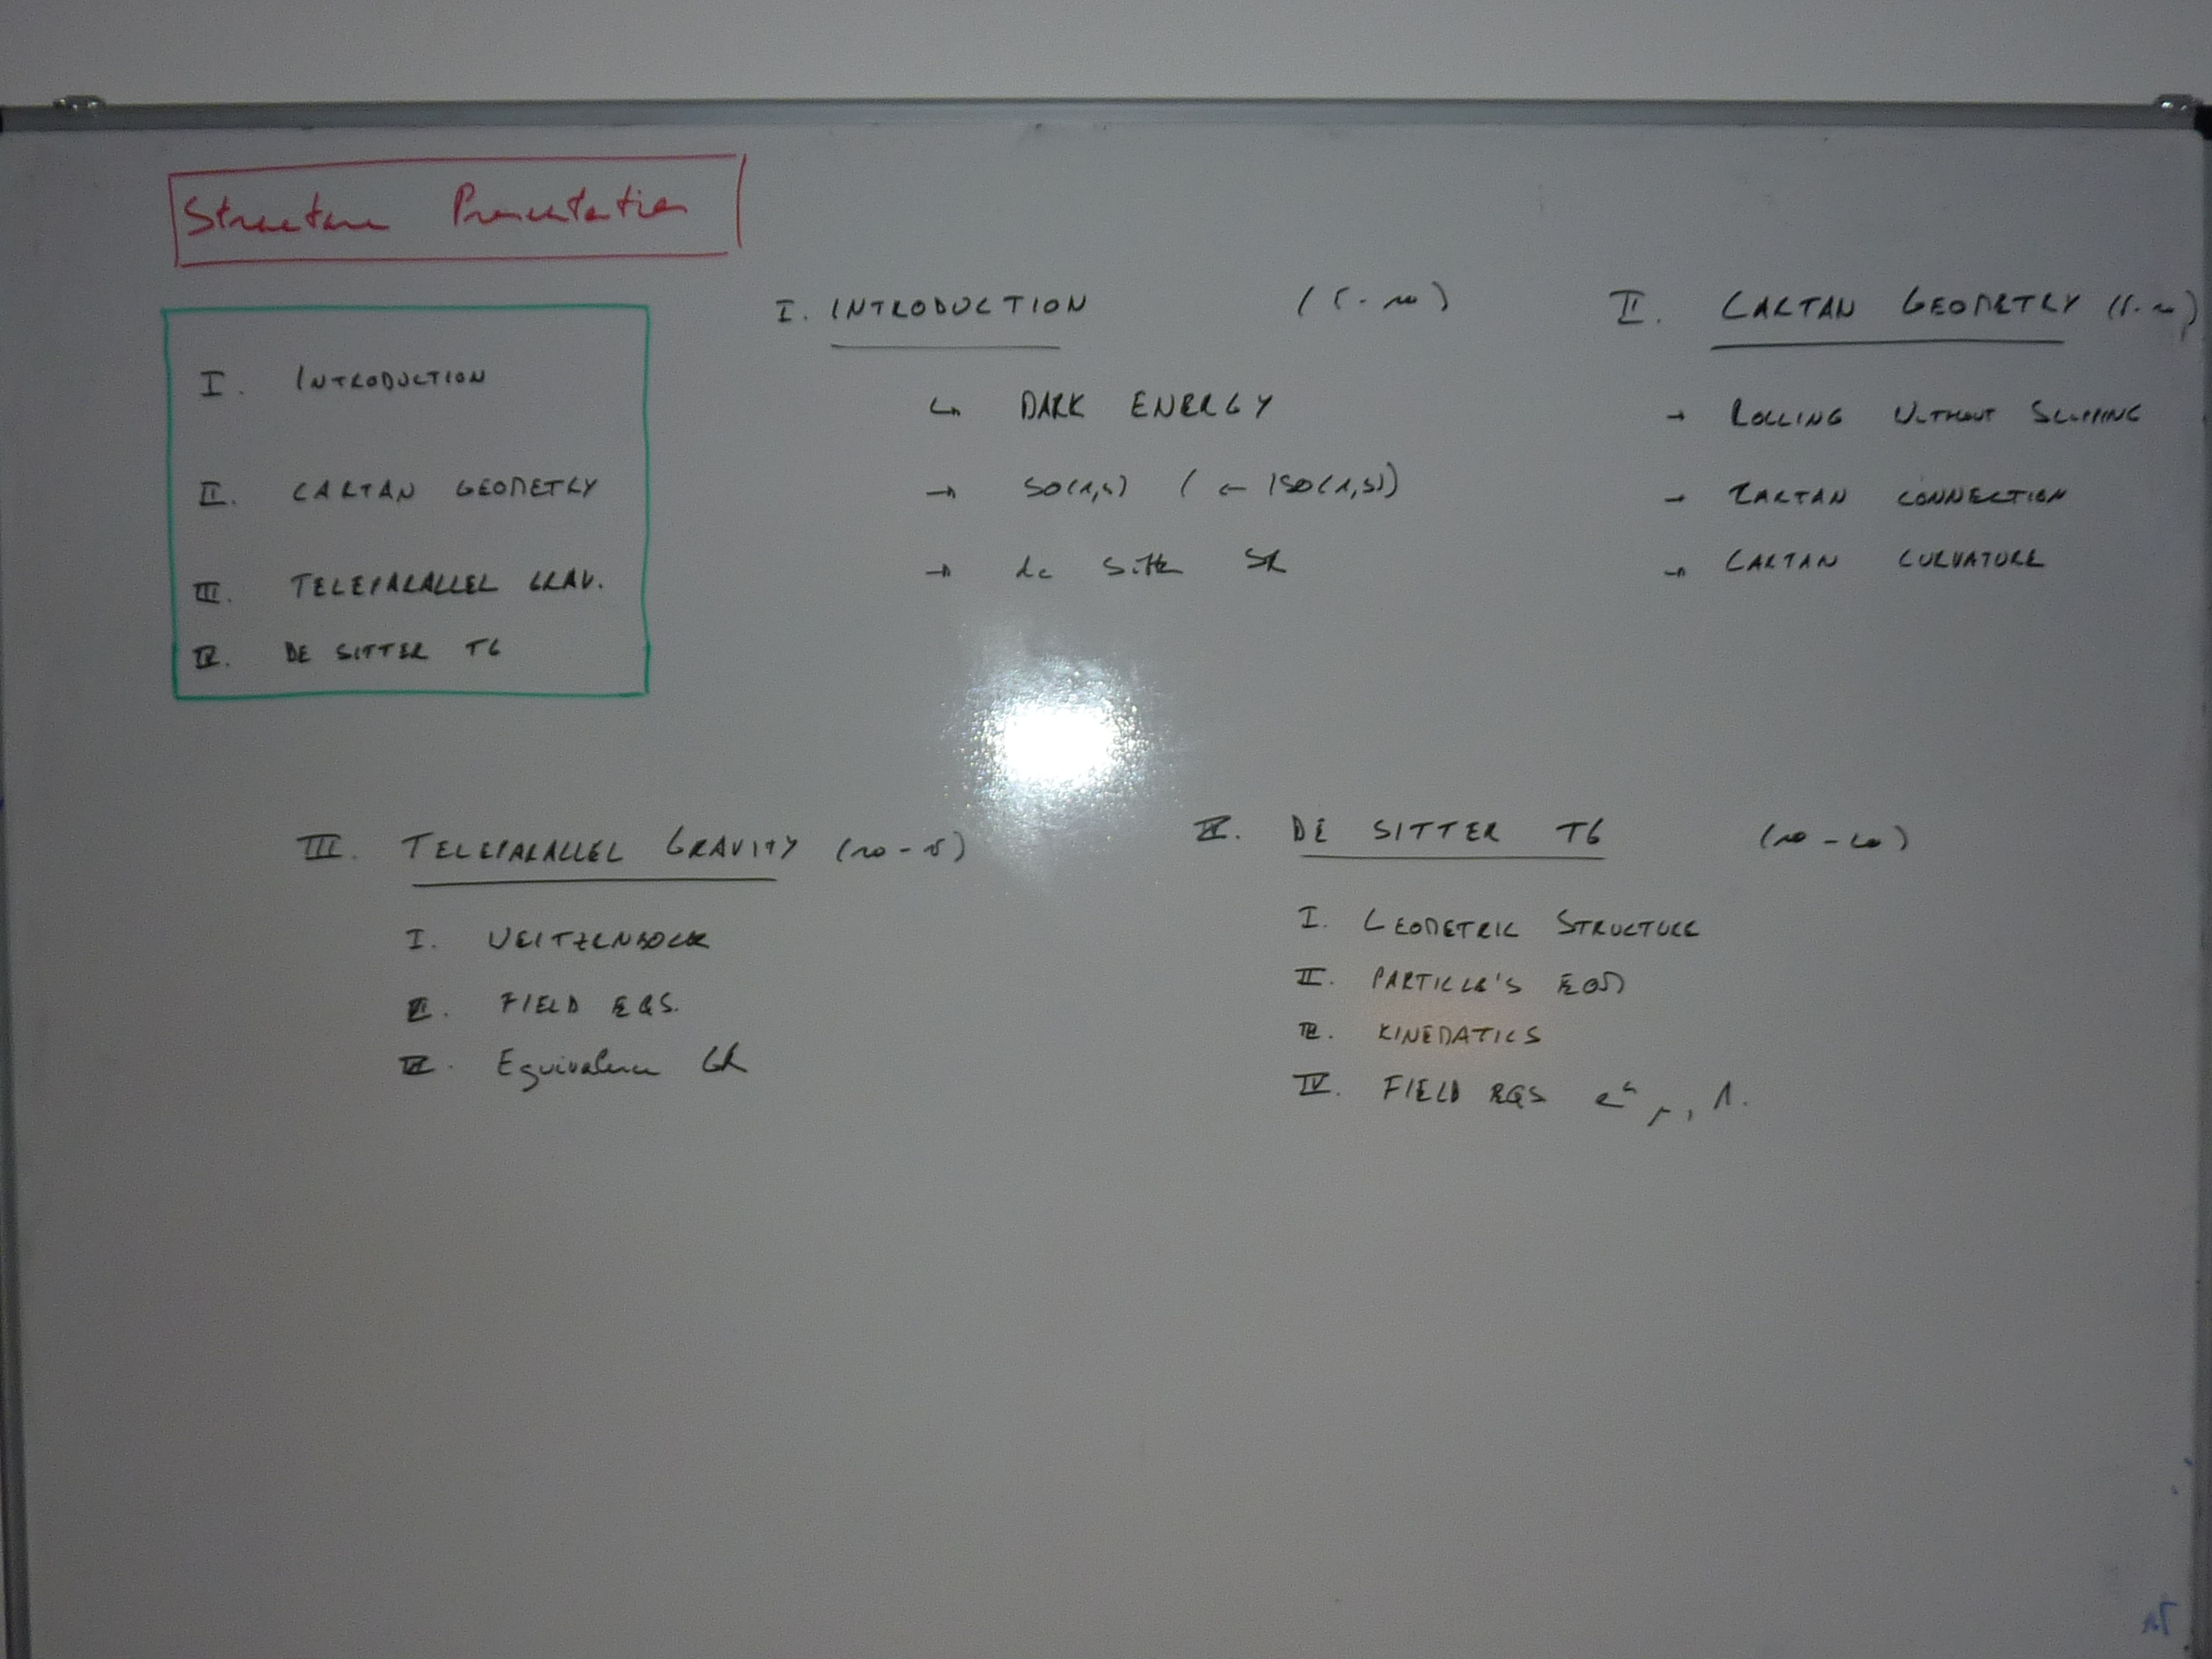 Structure Presentation
I. INTRODUCTION
II. CARTAN GEOMETRY
III. TELEPARALLEL GRAV.
IV. DE SITTER TG
I. INTRODUCTION (5-10)
↳ DARK ENERGY
→ SO(1,4) (← ISO(1,3))
→ de Sitter SR
II. CARTAN GEOMETRY (5-10)
→ ROLLING WITHOUT SLIPPING
→ CARTAN CONNECTION
→ CARTAN CURVATURE
III. TELEPARALLEL GRAVITY (10-15)
I. WEITZENBOCK
II. FIELD EQS.
III. Equivalence GR
IV. DE SITTER TG (10-20)
I. GEOMETRIC STRUCTURE
II. PARTICLE'S EOM
III. KINEMATICS
IV. FIELD EQS e^a_μ, Λ.